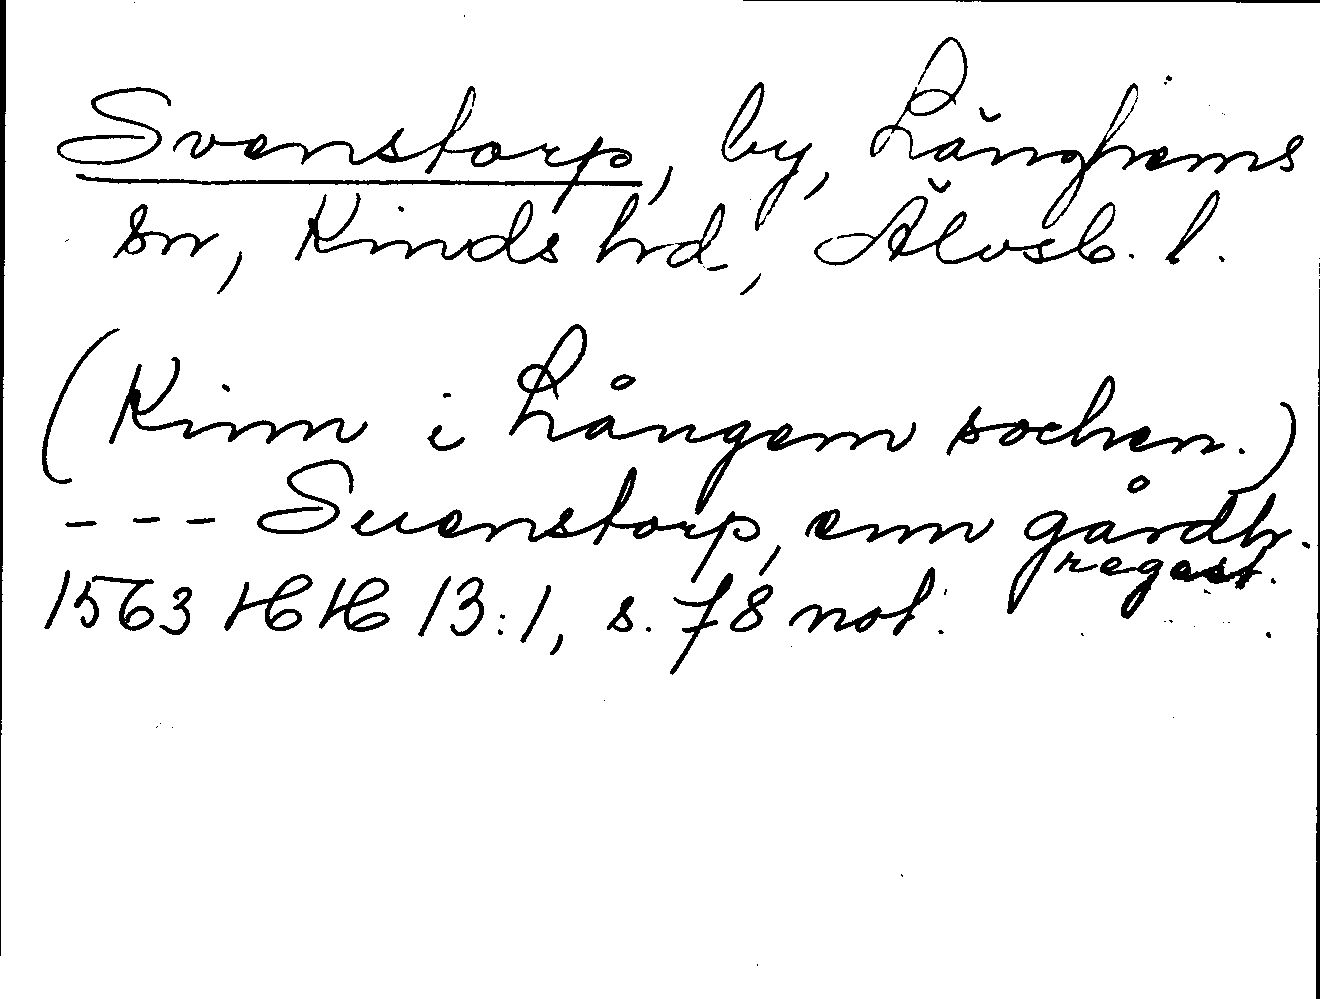 Svenstorp, by, Länghems
sn, Kinds hd, Älvsb. l.
(Kinn i Långem sochen.)
--- Suenstorp, enn gårdh.
regest.
1563 HH 13:1, s. 78 not.